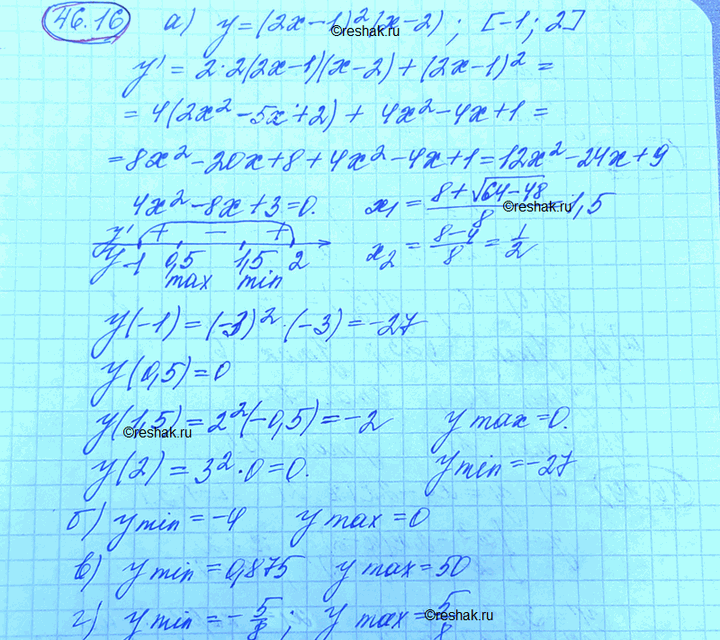 46.16 а) y = (2x-1)²(x-2); [-1; 2]
y' = 2·2(2x-1)(x-2) + (2x-1)² =
= 4(2x² - 5x + 2) + 4x² - 4x + 1 =
= 8x² - 20x + 8 + 4x² - 4x + 1 = 12x² - 24x + 9
4x² - 8x + 3 = 0. x₁ = (8 + √(64-48))/8 = 1,5
y' + - + x₂ = (8-4)/8 = 1/2
y -1 0,5 1,5 2
max min
y(-1) = (-3)²·(-3) = -27
y(0,5) = 0
y(1,5) = 2²(-0,5) = -2 y max = 0.
y(2) = 3²·0 = 0. y min = -27
б) y min = -4 y max = 0
в) y min = 0,875 y max = 50
г) y min = -5/8; y max = 5/8
©reshak.ru
©reshak.ru
©reshak.ru
©reshak.ru